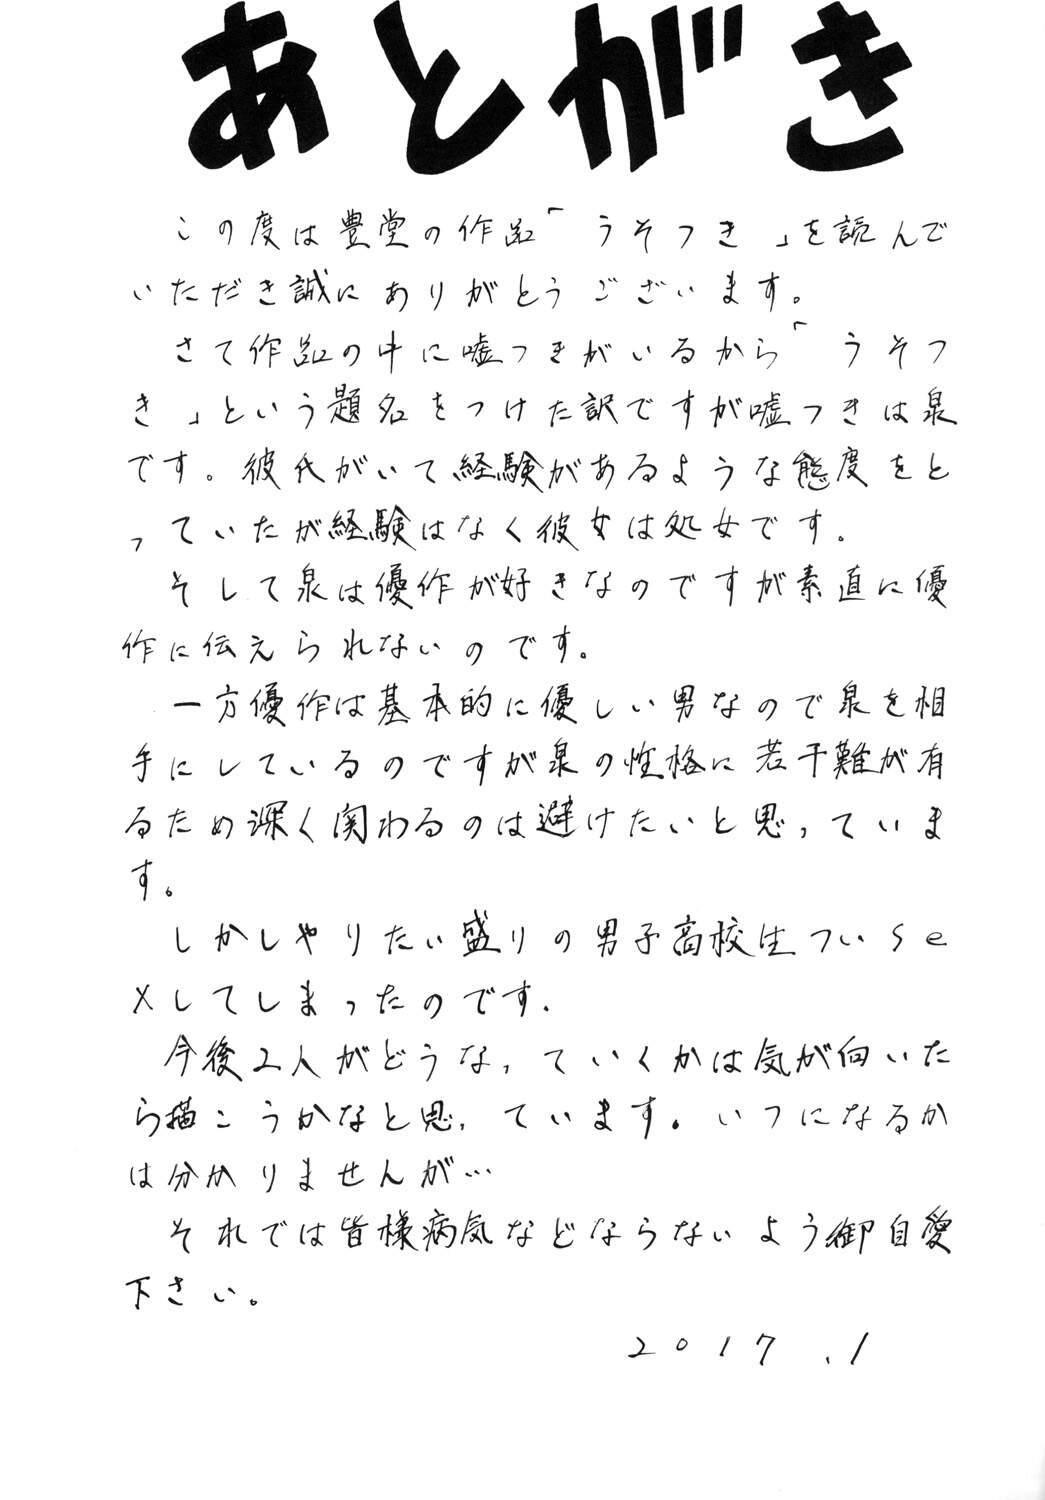 あとがき
この度は豊堂の作品「うそつき」を読んで
いただき誠にありがとうございます。
さて作品の中に嘘つきがいるから「うそつ
き」という題名をつけた訳ですが嘘つきは泉
です。彼氏がいて経験があるような態度をと
っていたが経験はなく彼女は処女です。
そして泉は優作が好きなのですが素直に優
作に伝えられないのです。
一方優作は基本的に優しい男なので泉を相
手にしているのですが泉の性格に若干難が有
るため深く関わるのは避けたいと思っていま
す。
しかしやりたい盛りの男子高校生ついSe
Xしてしまったのです.
今後2人がどうなっていくかは気が向いた
ら描こうかなと思っています。いつになるか
は分かりませんが…
それでは皆様病気などならないよう御自愛
下さい。
2017.1